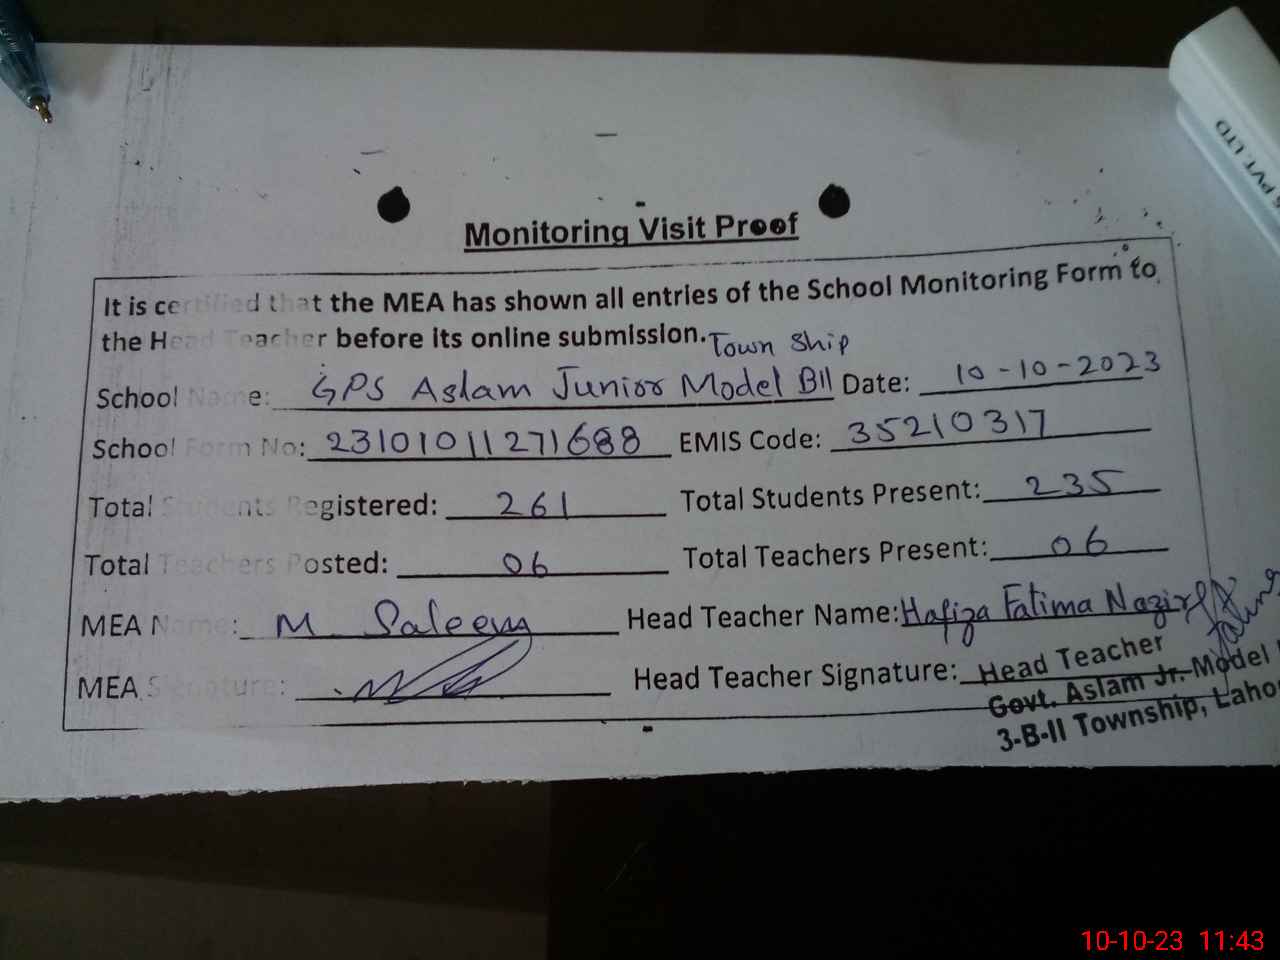 PVT. LTD
Monitoring Visit Proof
It is certified that the MEA has shown all entries of the School Monitoring Form to
the Head Teacher before its online submission.
Town Ship
School Name: GPS Aslam Junior Model BII Date: 10-10-2023
School Form No: 23101011271688 EMIS Code: 35210317
Total Students Registered: 261 Total Students Present: 235
Total Teachers Posted: 06 Total Teachers Present: 06
MEA Name: M. Saleem Head Teacher Name: Hafiza Fatima Nazir
MEA Signature: Head Teacher Signature:
Head Teacher
Govt. Aslam Jr. Model
3-B-II Township, Laho
10-10-23 11:43